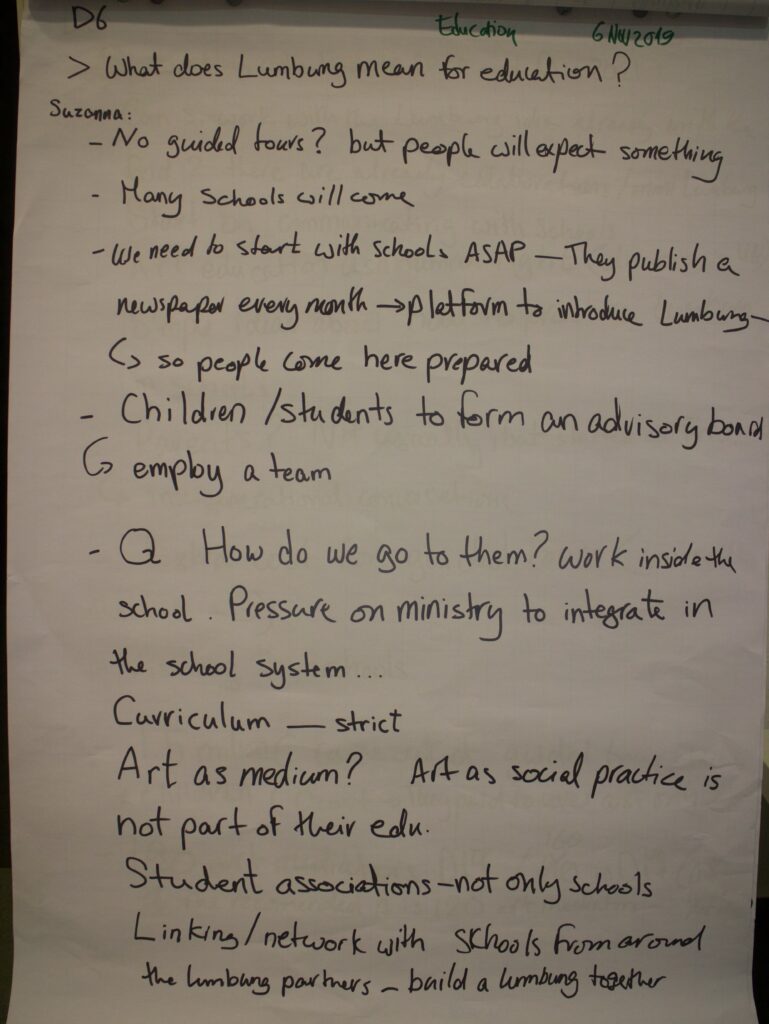 D6 Education 6 Nov 2019
> What does Lumbung mean for education?
Suzanna:
- No guided tours? but people will expect something
- Many schools will come
- We need to start with schools ASAP — They publish a
newspaper every month → platform to introduce Lumbung –
↳ so people come here prepared
- Children / students to form an advisory board
↳ employ a team
- Q How do we go to them? work inside the
school. Pressure on ministry to integrate in
the school system...
Curriculum — strict
Art as medium? Art as social practice is
not part of their edu.
Student associations – not only schools
Linking/network with schools from around
the lumbung partners – build a lumbung together